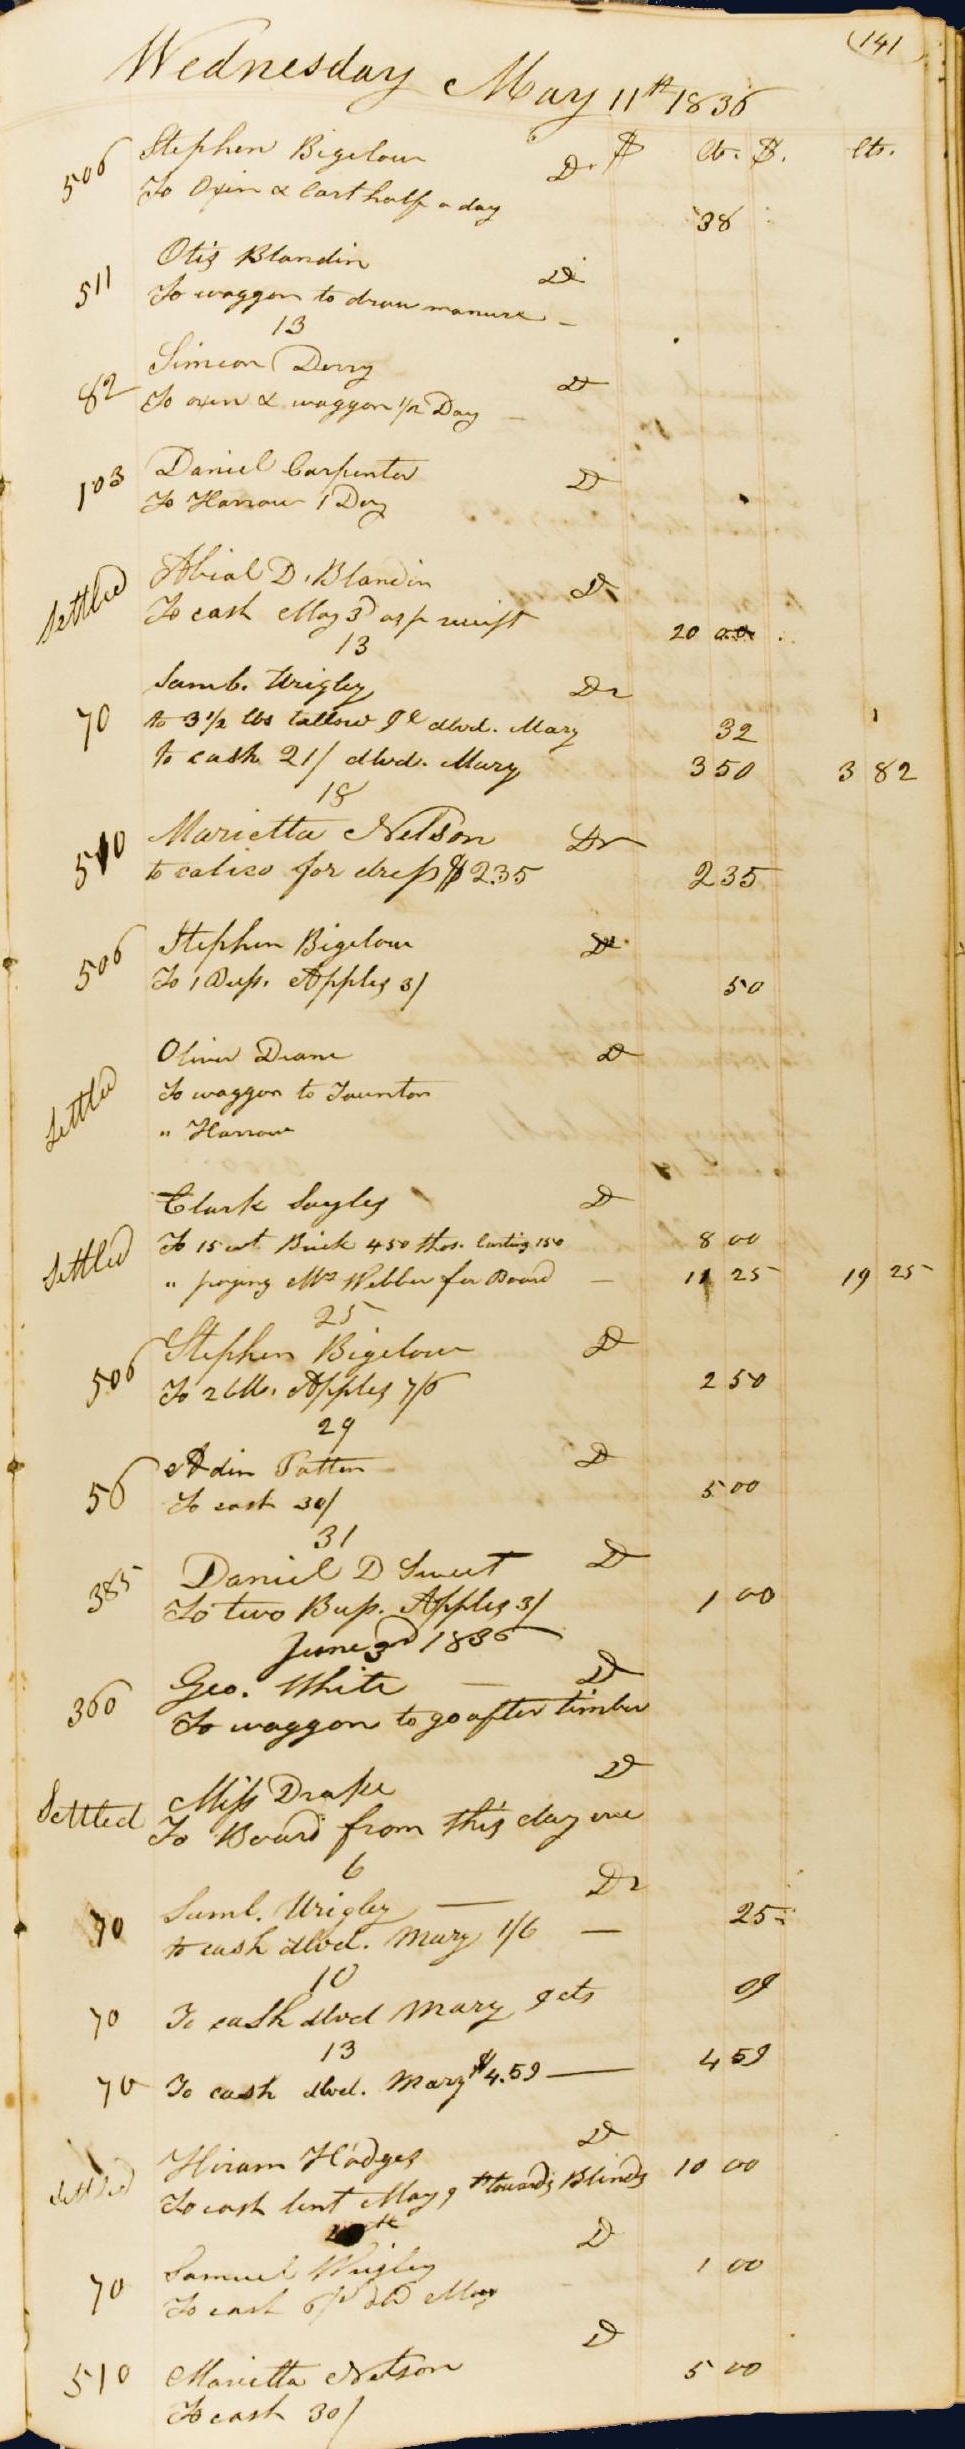 141
Wednesday May 11th 1836
$ cts. $. cts.
506 Stephen Bigelow Dr
To Oxin & Cart half a day 38
511 Otis Blandin Dr
To waggon to draw manure
13
82 Simeon Derry Dr
To oxen & waggon 1/2 Day
103 Daniel Carpenter Dr
To Harrow 1 Day
Settled Abial D. Blandin Dr
To cash May 3d as pr receipt 20 00
13
70 Saml. Wrigley Dr
to 3 1/2 lbs tallow 9c dlvd. Mary 32
to cash 21/ dlvd. Mary 3 50 3 82
18
510 Marietta Nelson Dr
to calico for dress $2.35 2 35
506 Stephen Bigelow Dr
To 1 Bus. Apples 3/ 50
Settled Oliver Deane Dr
To waggon to Taunton
" Harrow
Settled Clark Sayles Dr
To 15 cwt Brick 450 thos. Carting 150 8 00
" paying Mrs Webber for Board 11 25 19 25
25
506 Stephen Bigelow Dr
To 2 bbls. Apples 7/6 2 50
29
56 Adin Patten Dr
To cash 30/ 5 00
31
385 Daniel D Sweet Dr
To two Bus. Apples 3/ 1 00
June 3rd 1836
360 Geo. White Dr
To waggon to go after timber
Settled Miss Drake Dr
To Board from this day
6
70 Saml. Wrigley Dr
to cash dlvd. Mary 1/6 25
10
70 To cash dlvd Mary 9 cts 09
13
70 To cash dlvd. Mary $4.59 4 59
Settled Hiram Hodges Dr
To cash lent May 9th towards Blinds 10 00
70 Samuel Wrigley Dr 1 00
To cash 6/ dld Mary
510 Marietta Nelson Dr 5 00
To cash 30/